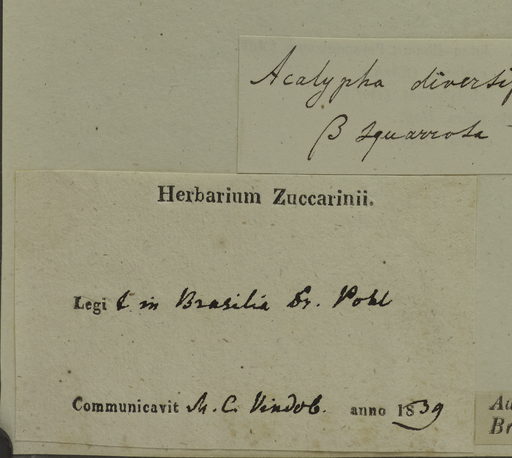 Acalypha diversif
β squarrosa
Herbarium Zuccarinii.
Legi t in Brasilia Dr. Pohl
Communicavit M. C. Vindob. anno 1839
Au
Br